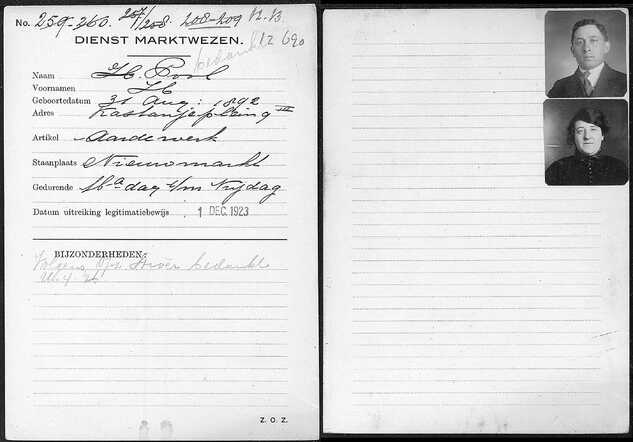 No. 259-260. 207/208 208-209 N.B.
DIENST MARKTWEZEN. 12 690
bedankt
Naam H. Pool
Voornamen H
Geboortedatum 31 Aug: 1892
Adres Kastanjeplein
Artikel Aardewerk
Staanplaats Nieuwmarkt
Gedurende Ma dag t/m Vrijdag
Datum uitreiking legitimatiebewijs 1 DEC. 1923
BIJZONDERHEDEN:
Volgens bedankt
Z. O. Z.